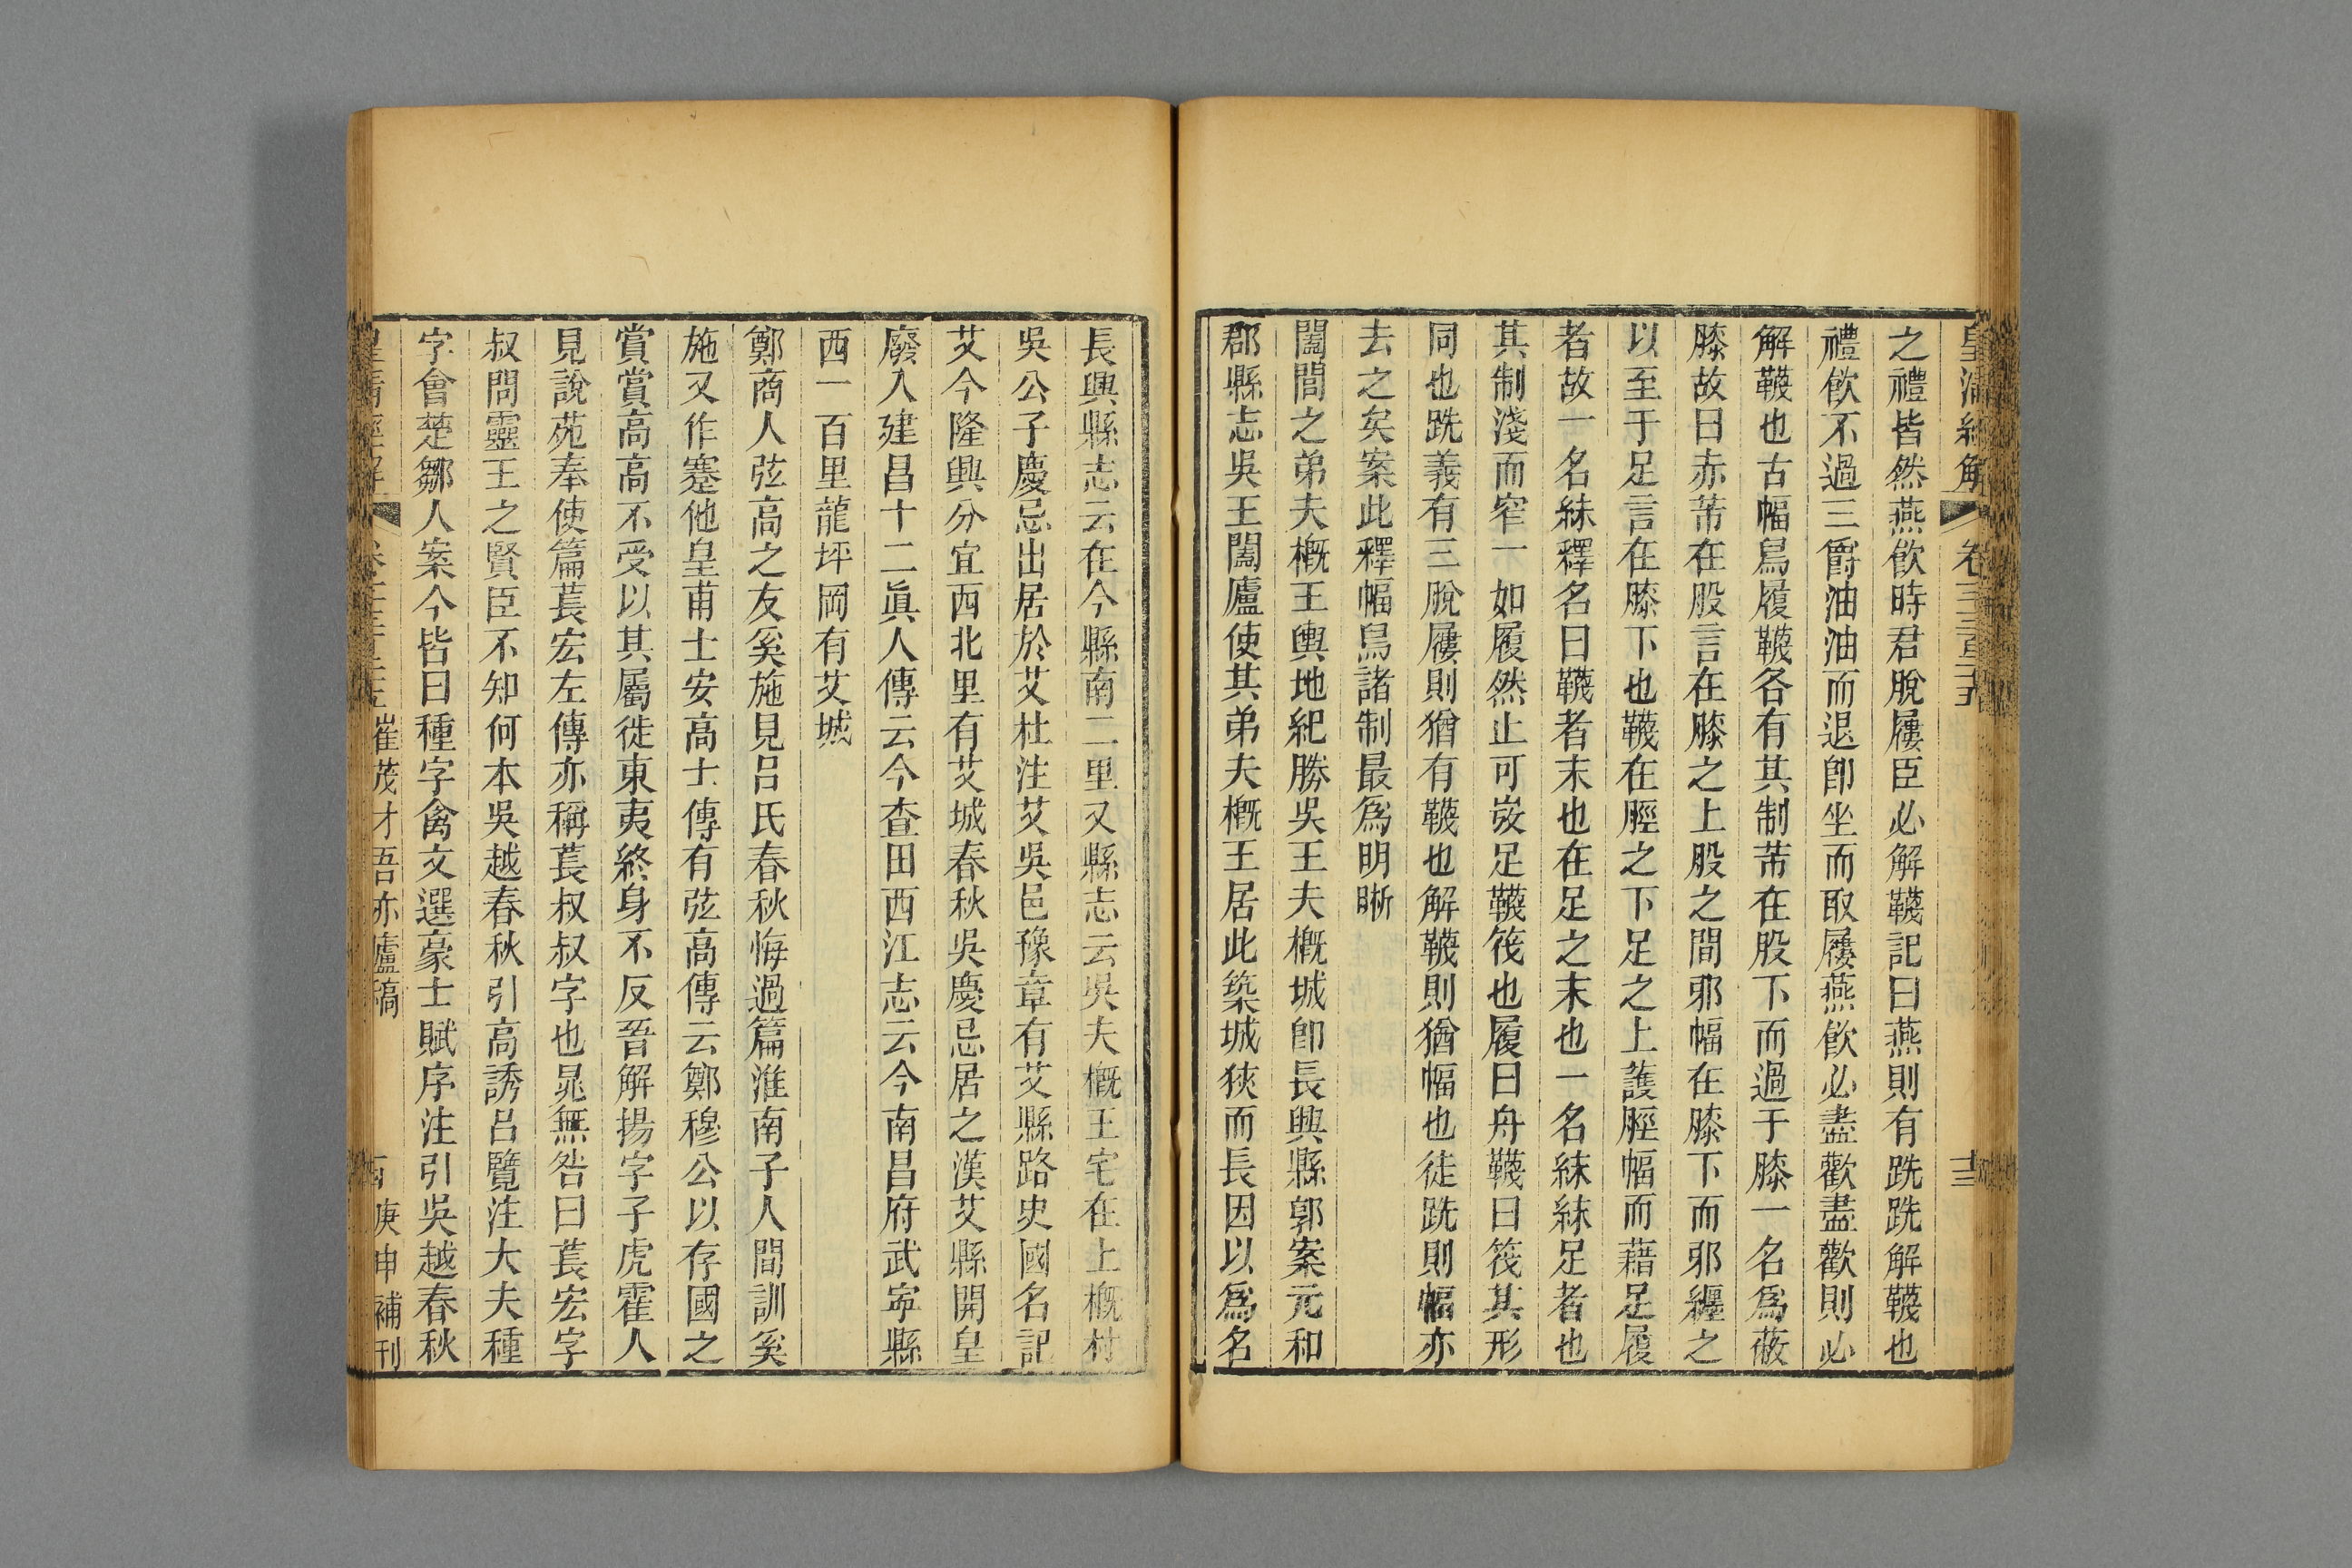 皇清經解
卷一千三百二十五
十三
之禮皆然燕飲時君脫屨臣必解韈記曰燕則有跣跣解韈也
禮飲不過三爵油油而退卽坐而取屨燕飲必盡歡盡歡則必
解韈也古幅舄履韈各有其制芾在股下而過于膝一名爲蔽
膝故曰赤芾在股言在膝之上股之間邪幅在膝下而邪纏之
以至于足言在膝下也韈在脛之下足之上護脛幅而藉足履
者故一名絉釋名曰韈者末也在足之末也一名絉絉足者也
其制淺而窄一如履然止可㰸足韈筏也履曰舟韈曰筏其形
同也跣義有三脫屨則猶有韈也解韈則猶幅也徒跣則幅亦
去之矣案此釋幅舄諸制最爲明晣
闔閭之弟夫槪王輿地紀勝吳王夫槪城卽長興縣郭案元和
郡縣志吳王闔廬使其弟夫槪王居此築城狹而長因以爲名
長興縣志云在今縣南二里又縣志云吳夫槪王宅在上槪村
吳公子慶忌出居於艾杜注艾吳邑豫章有艾縣路史國名記
艾今隆興分宜西北里有艾城春秋吳慶忌居之漢艾縣開皇
廢入建昌十二眞人傳云今查田西江志云今南昌府武寧縣
西一百里龍坪岡有艾城
鄭商人弦高之友奚施見呂氏春秋悔過篇淮南子人間訓奚
施又作蹇他皇甫士安高士傳有弦高傳云鄭穆公以存國之
賞賞高高不受以其屬徙東夷終身不反晉解揚字子虎霍人
見說苑奉使篇萇宏左傳亦稱萇叔叔字也晁無咎曰萇宏字
叔問靈王之賢臣不知何本吳越春秋引高誘呂覽注大夫種
字會楚鄒人案今皆曰種字禽文選豪士賦序注引吳越春秋
皇清經解
崔茂才吾亦廬稿
庚申補刊